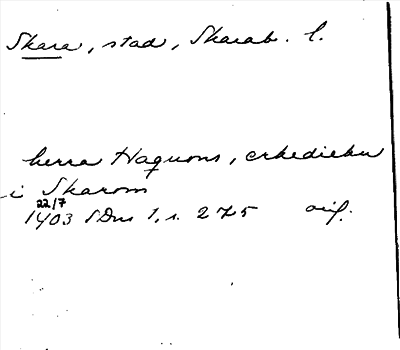 Skara, stad, Skarab. l.
herra Haquons, erkediekn
i Skarom
22/7
1403 SDns 1, s. 275 orig.